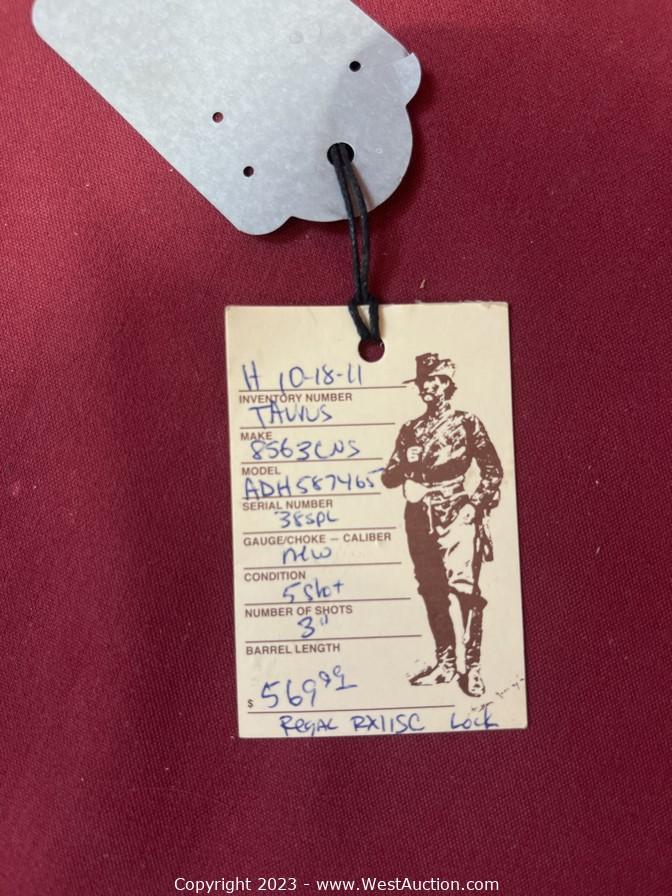 H 10-18-11
INVENTORY NUMBER
TAURUS
MAKE
8563CNS
MODEL
ADH587465
SERIAL NUMBER
38SPL
GAUGE/CHOKE – CALIBER
New
CONDITION
5 Shot
NUMBER OF SHOTS
3"
BARREL LENGTH
$ 569.99
Regal RX115C Lock
Copyright 2023 - www.WestAuction.com